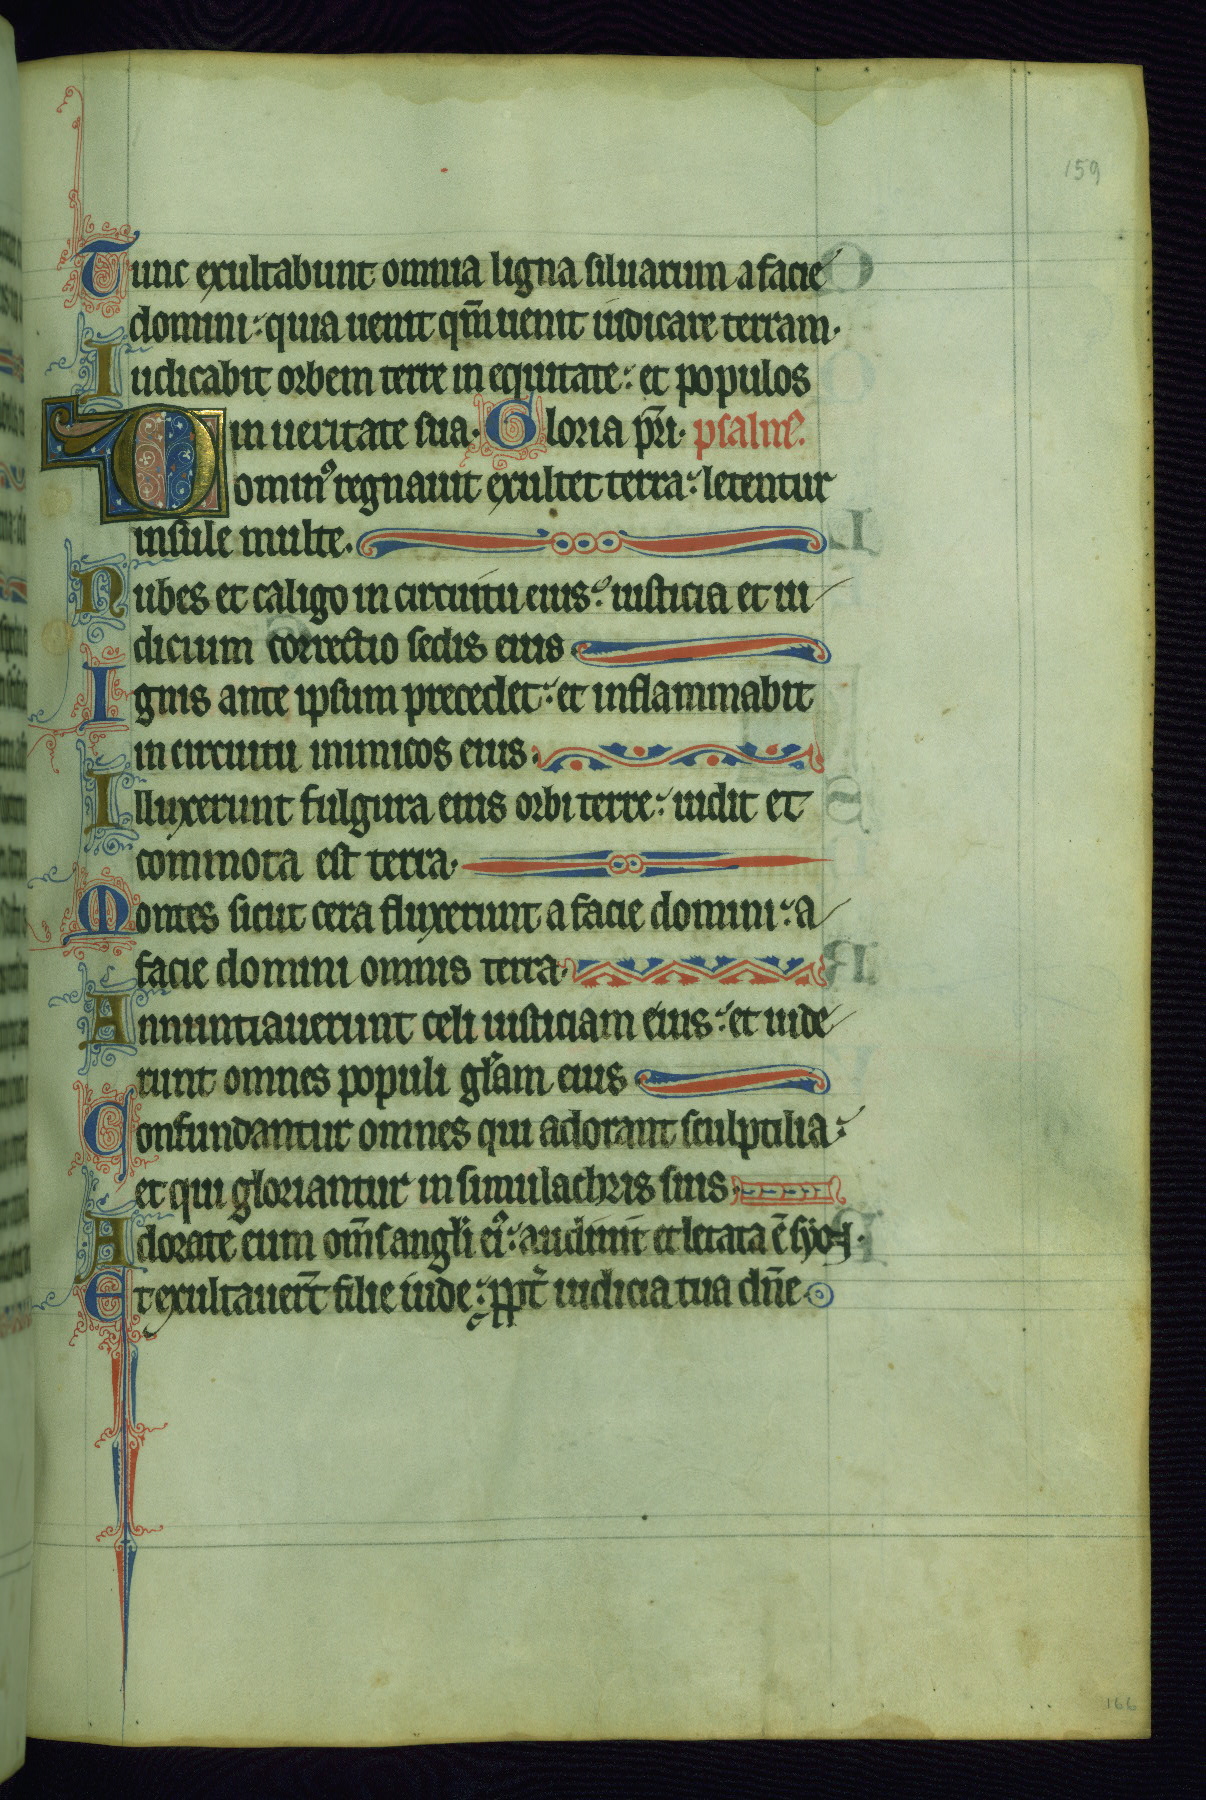 159
Tunc exultabunt omnia ligna siluarum a facie
domini: quia uenit qm̄ uenit iudicare terram.
Iudicabit orbem terre in equitate: et populos
in ueritate sua. Gloria pr̄i. psalm9.
Domin9 regnauit exultet terra: letentur
insule multe.
Nubes et caligo in circuitu eius: iusticia et iu
dicium correctio sedis eius
Ignis ante ipsum precedet: et inflammabit
in circuitu inimicos eius.
Illuxerunt fulgura eius orbi terre: uidit et
commota est terra.
Montes sicut cera fluxerunt a facie domini: a
facie domini omnis terra.
Annuntiauerunt celi iusticiam eius: et uide
runt omnes populi gl̄am eius
Confundantur omnes qui adorant sculptilia:
et qui gloriantur in simulachris suis.
Adorate eum om̄s angl̄i ei9: audiuit et letata ē syon.
Et exultauer̄t filie iude: ppt̄ iudicia tua dn̄e
166